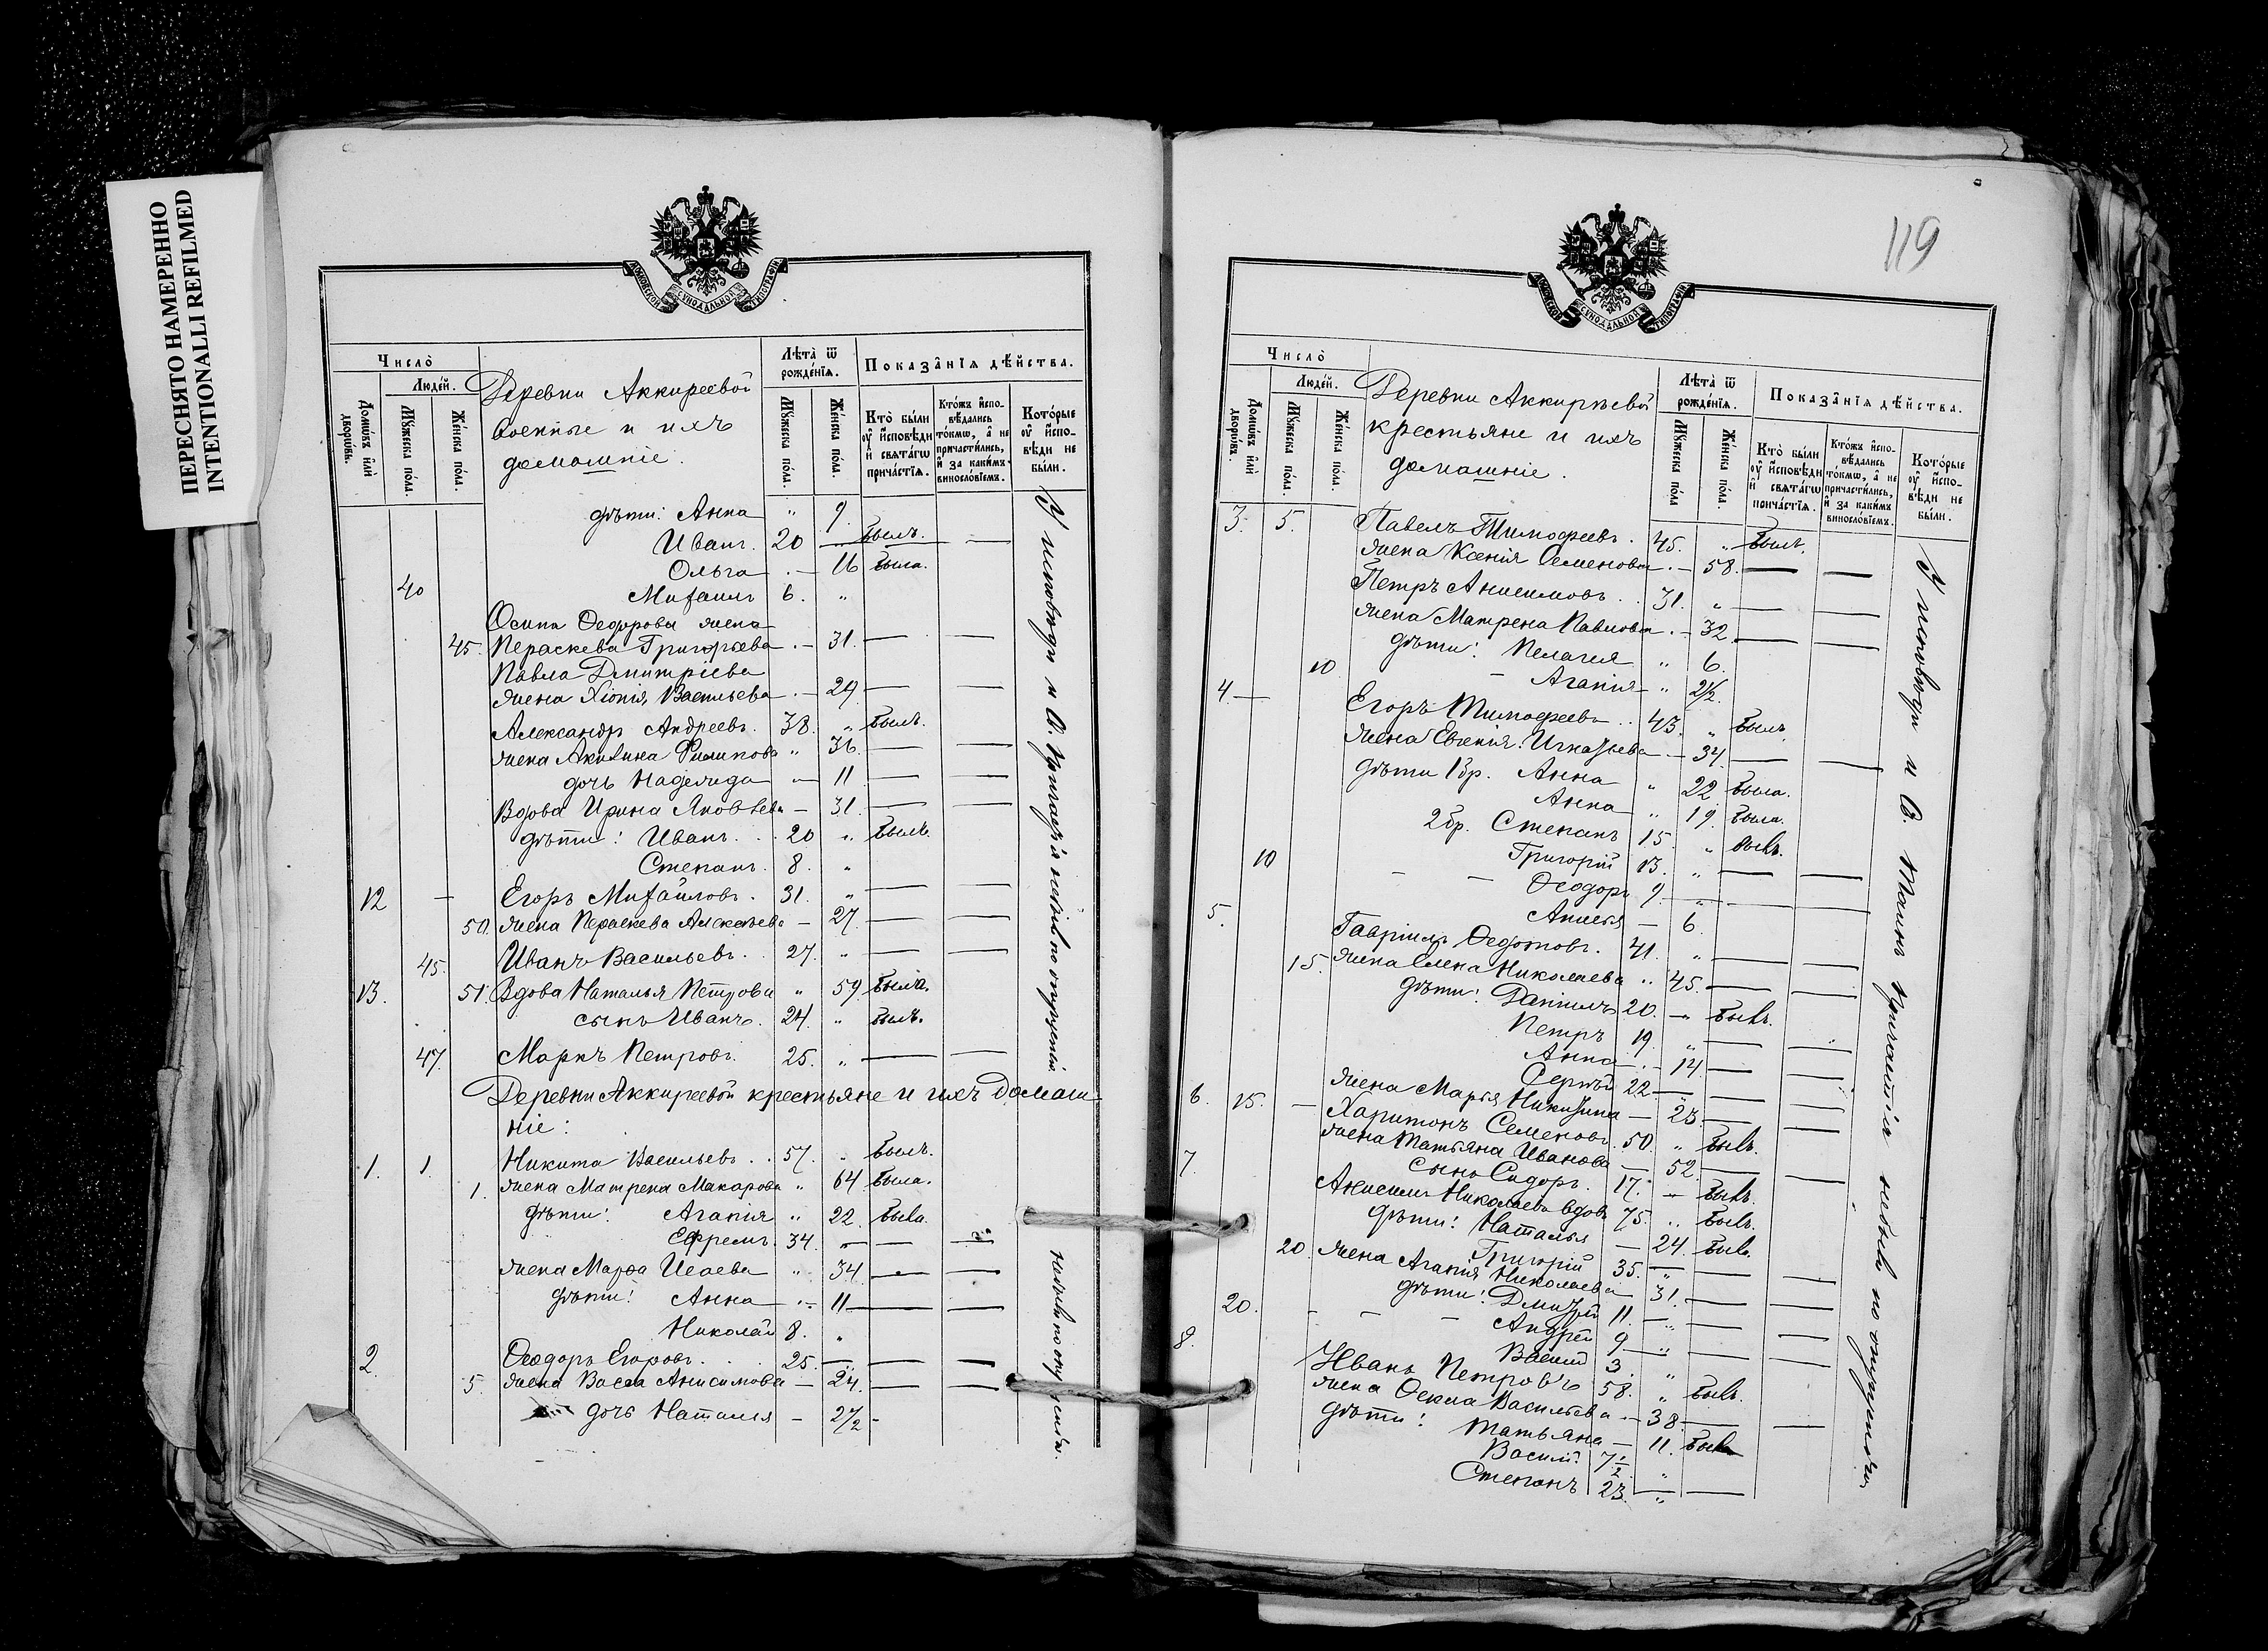 ПЕРЕСНЯТО НАМЕРЕННО
INTENTIONALLI REFILMED
МОСКОВСКОЙ СѴНОДАЛЬНОЙ ТИПОГРАФІИ
Число̀
Людей.
Домѡвъ или дворѡвъ.
Мꙋжеска пола.
Женска пола.
Деревни Аккиреевой
военные и ихъ
домашніе.
Лѣта ѿ рожденїя.
Мꙋжеска пола.
Женска пола.
Показанїя дѣйства.
Кто были оу исповѣди и свѧтагѡ причастїя.
Ктожъ исповѣдались токмѡ, а не причастились, и за какимъ винословїемъ.
Которые оу исповѣди не были.
дѣти: Анна " 9.
Иванъ. 20 — былъ. —
Ольга — 16 была.
40 Михаилъ 6. "
Осипа Ѳедорова жена
45. Пераскева Григорьева — 31. — —
Павла Дмитріева
жена Хіонія Васильева — 29. — —
Александръ Андреевъ. 38. " былъ.
жена Акилина Филипова " 36. — —
дочь Надежда — 11 — —
Вдова Ирина Яковлева — 31. — —
дѣти: Иванъ. 20 " былъ.
Степанъ. 8. "
12 — Егоръ Михайловъ. 31. " — —
50. жена Пераскева Алексеева — 27 — —
45. Иванъ Васильевъ. 27. " — —
13. 51. Вдова Наталья Петрова " 59 была.
сынъ Иванъ. 24. " былъ.
47. Маркъ Петровъ. 25. " — —
Деревни Аккиреевой крестьяне и ихъ домаш-
ніе:
1. 1. Никита Васильевъ. 57. " былъ.
1. жена Матрена Макарова " 64 была.
дѣти: Агапія " 22. была.
Ефремъ. 34. — — —
жена Марѳа Исаева " 34. — —
дѣти: Анна — 11 — —
Николай 8. "
2. Ѳеодоръ Егоровъ. 25. — — —
5. жена Васса Анисимова — 24. — —
дочь Наталія — 2 1/2 -
не были по опущенію.
119
МОСКОВСКОЙ СѴНОДАЛЬНОЙ ТИПОГРАФІИ
Число̀
Людей.
Домѡвъ или дворѡвъ.
Мꙋжеска пола.
Женска пола.
Деревни Аккиреевой
крестьяне и ихъ
домашніе.
Лѣта ѿ рожденїя.
Мꙋжеска пола
Женска пола.
Показанїя дѣйства.
Кто были оу исповѣди и свѧтагѡ причастїя.
Ктожъ исповѣдались токмѡ, а не причастились, и за какимъ винословїемъ.
Которые оу исповѣди не были.
3. 5. Павелъ Тимоѳеевъ. 45. " былъ.
жена Ксенія Семенова — 58. — —
Петръ Анисимовъ. 31. " — —
жена Матрена Павлова — 32 — —
дѣти: Пелагея " 6.
10 Агапія — " 2 1/2.
4 — Егоръ Тимоѳеевъ. 43. " былъ.
жена Евгенія Игнатьева — 34. — —
дѣти 1 бр. Анна " 22 была.
Анна " 19. была.
2 бр. Степанъ 15. " былъ.
10 Григорій 13. " — —
Ѳеодоръ 9. " — —
Анисья — 6.
5. Гавріилъ Ѳедотовъ. 41. " — —
15. жена Елена Николаева " 45. — —
дѣти: Даніилъ 20. — былъ.
Петръ 19. " — —
Анна — 14. — —
Сергѣй 22 — — —
жена Марья Никитина — 23. — —
6. 15. — Харитонъ Семеновъ. 50. " былъ.
жена Татьяна Иванова — 52 — —
сынъ Сидоръ. 17. — былъ.
7. Анисимъ Николаевъ вдовъ 75. " былъ.
дѣти: Наталья — 24. была.
Григорій 35. " — —
20. жена Агапія Николаева 31. — —
дѣти: Дмитрій 11. — — —
20. Андрей 9 — " — —
Василій 3. "
8. Иванъ Петровъ 58. " былъ.
жена Ѳекла Васильева — 38. — —
дѣти: Татьяна — 11. была
Василій 7 1/2 "
Степанъ 23. " —